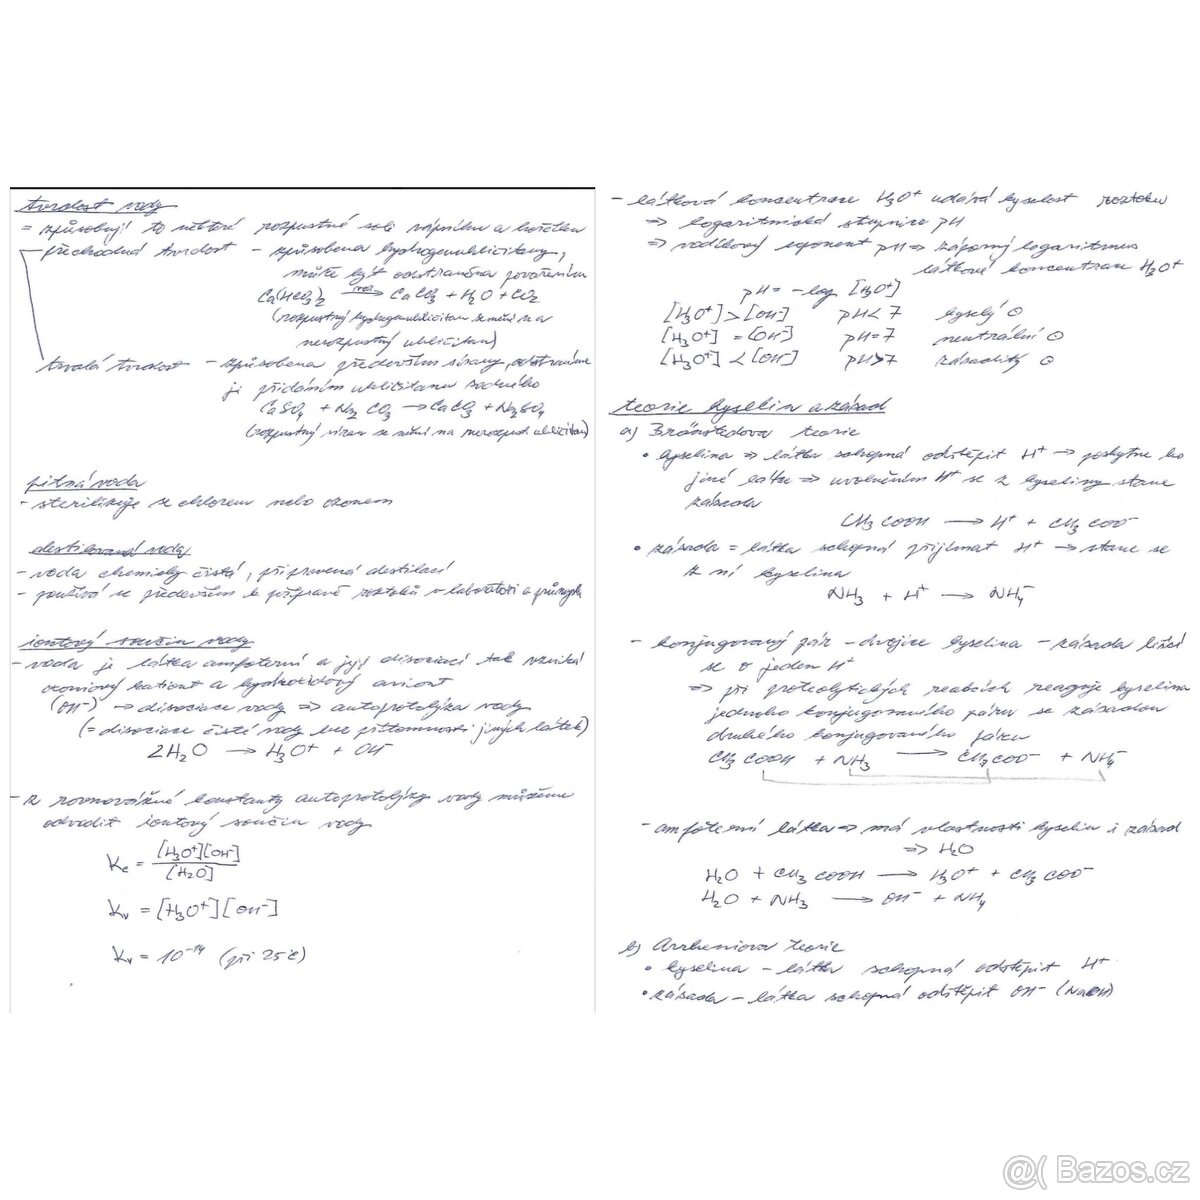 tvrdost vody
= způsobují to některé rozpustné soli vápníku a hořčíku
přechodná tvrdost - způsobena hydrogenuhličitany,
může být odstraněna povařením
Ca(HCO3)2 → CaCO3 + H2O + CO2
(rozpustný hydrogenuhličitan se mění na
nerozpustný uhličitan)
trvalá tvrdost - způsobena především sírany, odstraníme
ji přidáním uhličitanu sodného
CaSO4 + Na2CO3 → CaCO3 + Na2SO4
(rozpustný síran se mění na nerozpust. uhličitan)
pitná voda
- sterilizuje se chlorem nebo ozonem
destilovaná voda
- voda chemicky čistá, připravená destilací
- používá se především k přípravě roztoků v laboratoři a průmyslu
iontový součin vody
- voda je látka amfoterní a její disociací tak vzniká
oxoniový kationt a hydroxidový aniont
(OH⁻) → disociace vody ⇒ autoprotolýza vody
(= disociace čisté vody bez přítomnosti jiných látek)
2H2O → H3O⁺ + OH⁻
- z rovnovážné konstanty autoprotolýzy vody můžeme
odvodit iontový součin vody
Kc = [H3O⁺][OH⁻] / [H2O]
Kv = [H3O⁺][OH⁻]
Kv = 10⁻¹⁴ (při 25°C)
- látková koncentrace H3O⁺ udává kyselost roztoku
⇒ logaritmická stupnice pH
⇒ vodíkový exponent pH ⇒ záporný logaritmus
látkové koncentrace H3O⁺
pH = -log [H3O⁺]
[H3O⁺] > [OH⁻] pH < 7 kyselý ⊙
[H3O⁺] = [OH⁻] pH = 7 neutrální ⊙
[H3O⁺] < [OH⁻] pH > 7 zásaditý ⊙
teorie kyselin a zásad
a) Brönstedova teorie
• kyselina ⇒ látka schopná odštěpit H⁺ → poskytne ho
jiné látce ⇒ uvolněním H⁺ se z kyseliny stane
zásada
CH3COOH → H⁺ + CH3COO⁻
• zásada = látka schopná přijímat H⁺ → stane se
z ní kyselina
NH3 + H⁺ → NH4⁻
- konjugovaný pár - dvojice kyselina - zásada lišící
se o jeden H⁺
⇒ při protolytických reakcích reaguje kyselina
jednoho konjugovaného páru se zásadou
druhého konjugovaného páru
CH3COOH + NH3 → CH3COO⁻ + NH4⁻
- amfoterní látka ⇒ má vlastnosti kyselin i zásad
⇒ H2O
H2O + CH3COOH → H3O⁺ + CH3COO⁻
H2O + NH3 → OH⁻ + NH4
b) Arrheniova teorie
• kyselina - látka schopná odštěpit H⁺
• zásada - látka schopná odštěpit OH⁻ (NaOH)
@( Bazos.cz